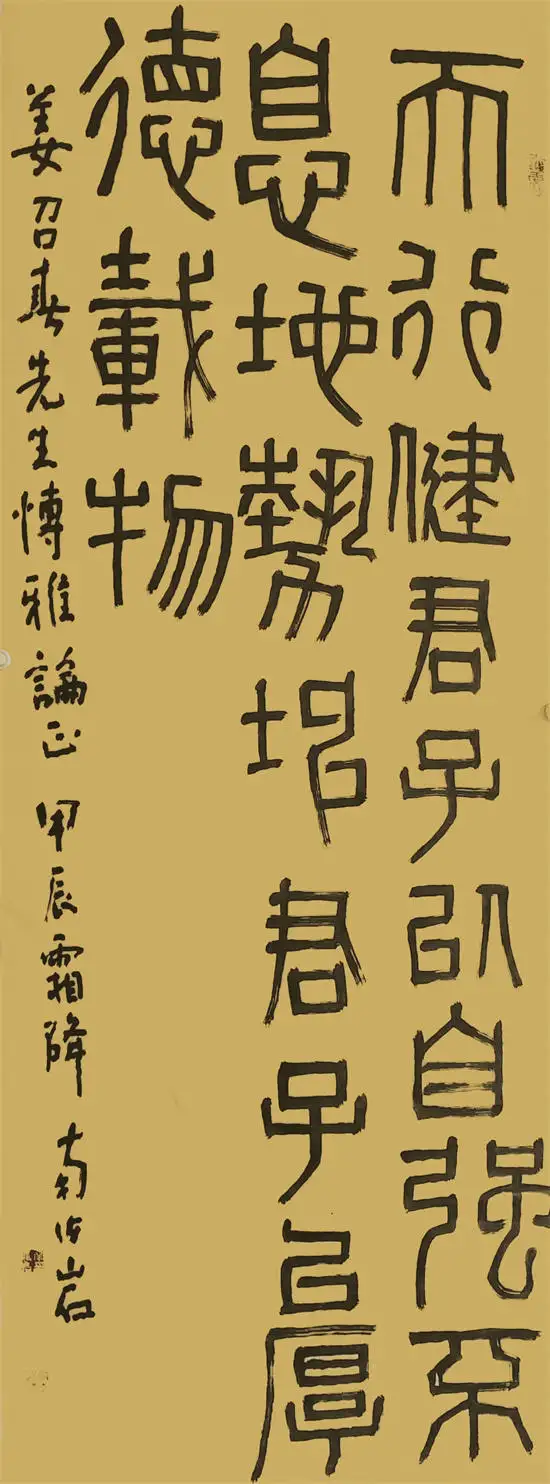 天行健君子以自强不
息地勢坤君子以厚
德載物
姜召春先生愽雅論正 甲辰霜降